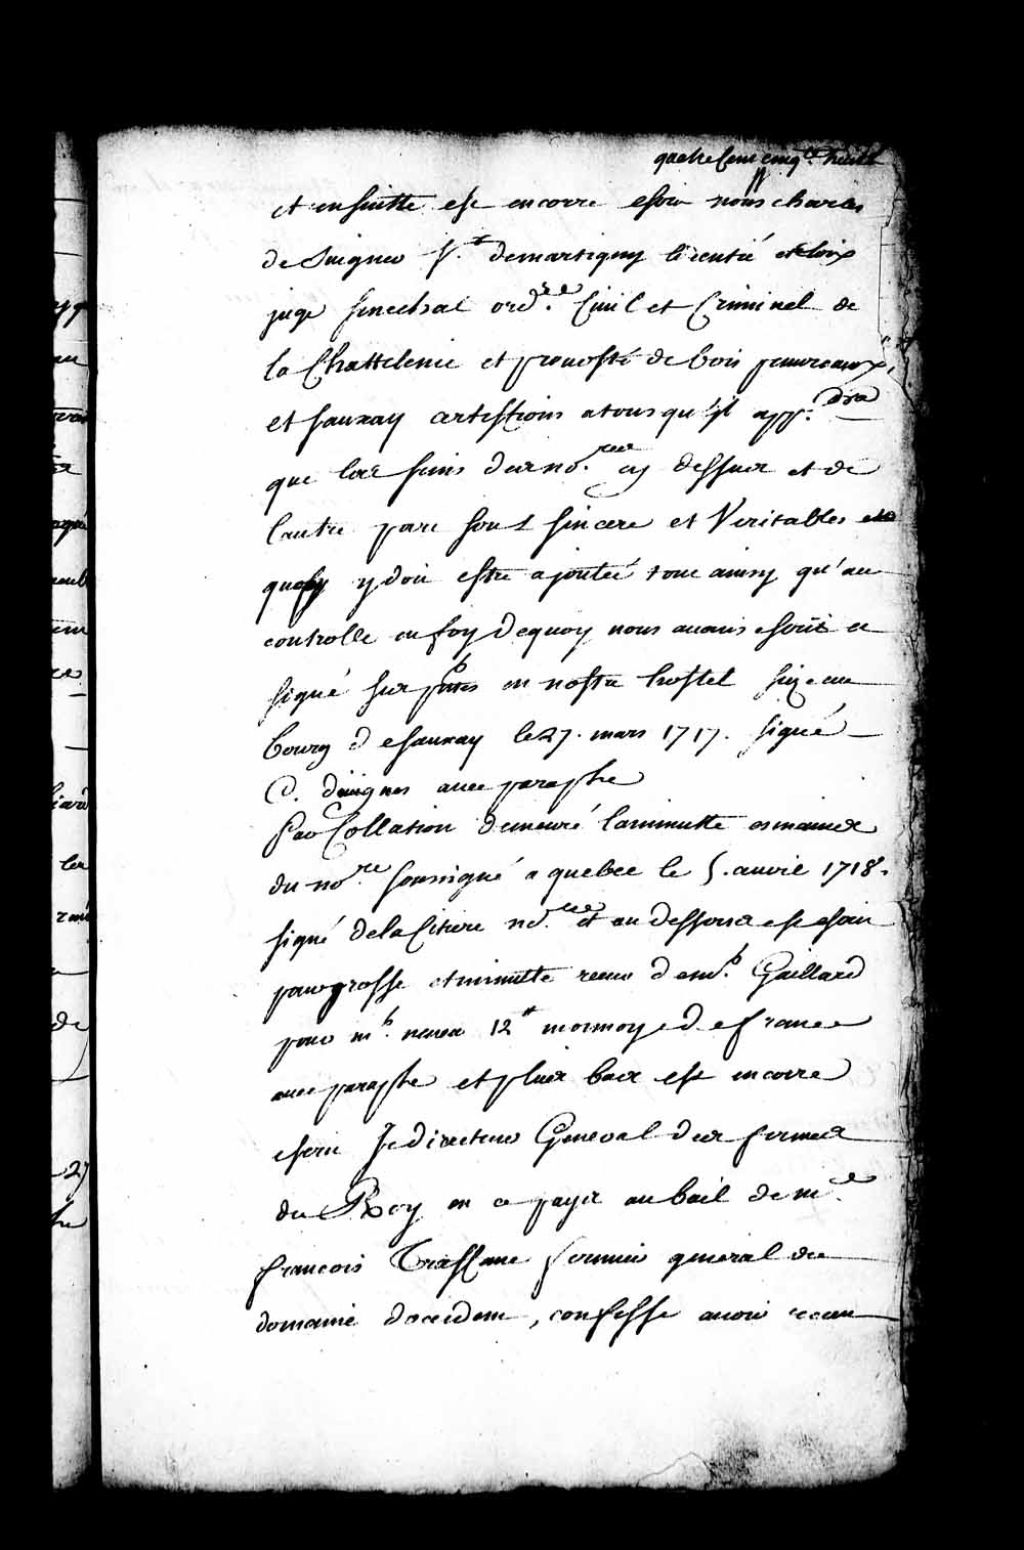 quatre Cent cinq.te huit
et ensuitte est encorre escrit nous charles
de Vuignes S.r demartigny licentié es loix
juge senechal ord.re Civil et Criminel de
la Chattelenie et prevosté de bois pouvreaux,
et sauxay certiffions atous qu'il app.dra
que les seins des no.res cy dessus et de
lautre part sont sincere et Veritables et
quefoy y doit estre ajoutée tout ainsy qu'au
controlle en foy dequoy nous avons escrit et
signé ses p.ntes en nostre hostel size au
bourg de sauxay le 27. mars 1717. signé
C. duvignes avec paraphe
Par Collation demeuré laminutte es mains
du no.re soussigné a quebec le 5. avril 1718.
signé delaCitiere no.re et au dessous est escrit
pour grosse et minutte receu de m.r Gaillard
pour m.r 12# monnoye de france
avec paraphe et plus bas est encorre
escrit Le directeur General des fermes
du Roy en ce payis au bail de m.e
francois Traffane fermier general du
domaine doccident, confesse avoir receu